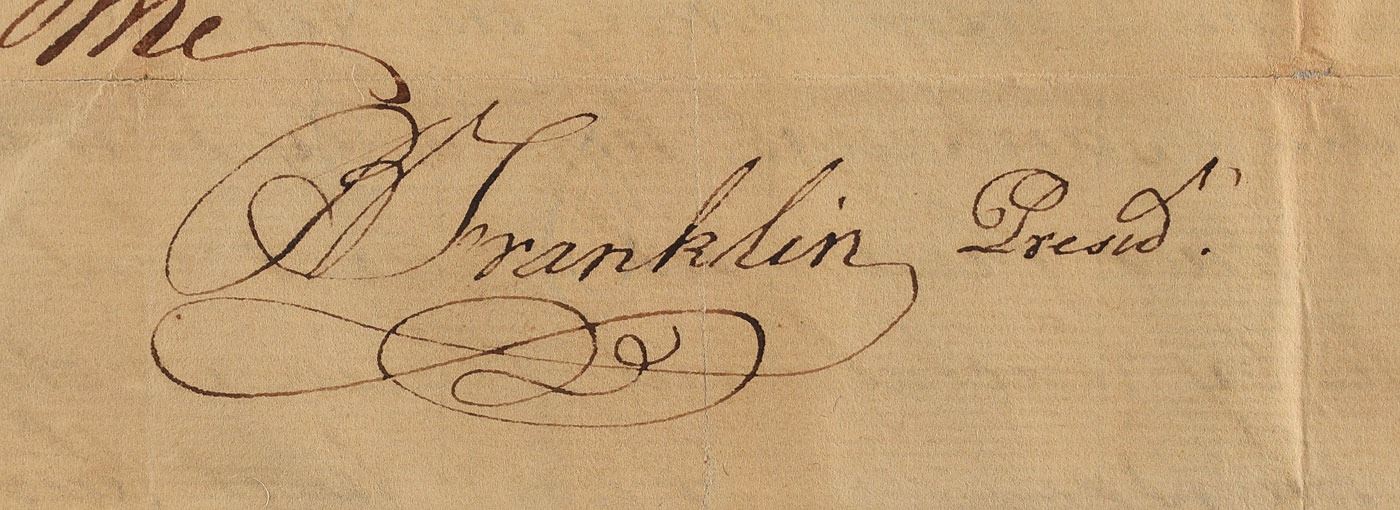 me
B Franklin Presid.ᵗ